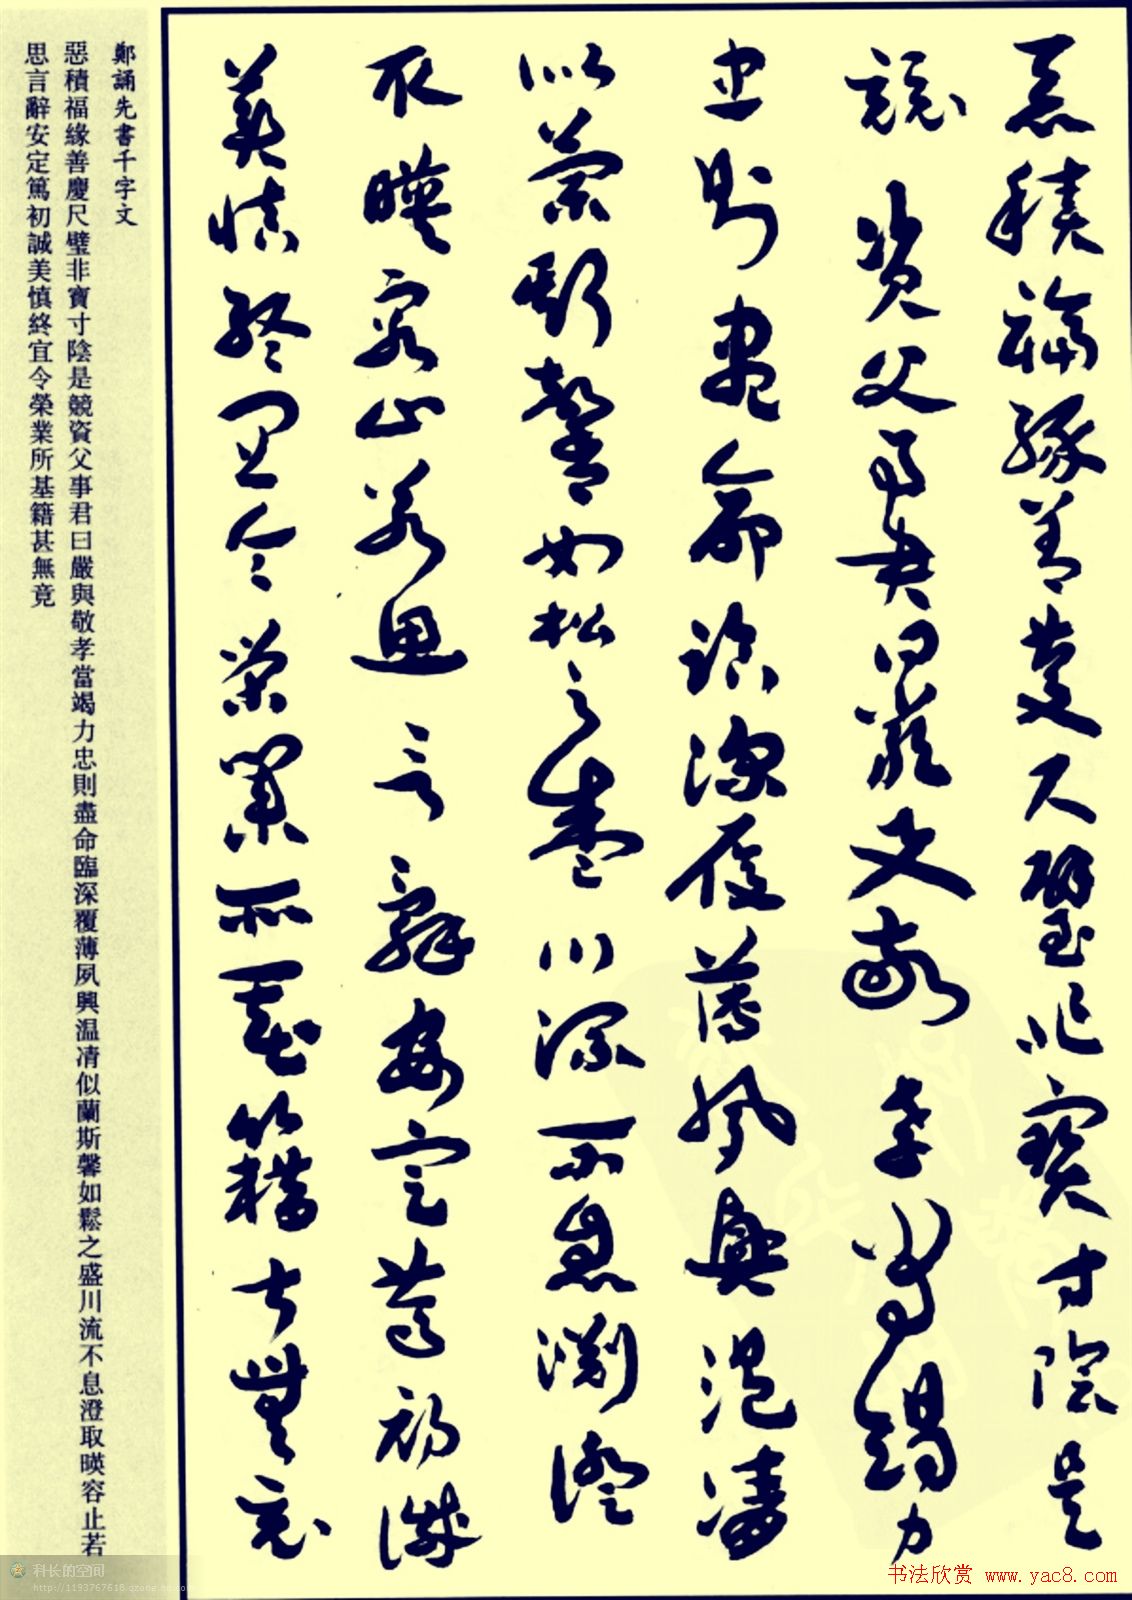 惡積福緣善慶尺璧非寶寸陰是
競資父事君曰嚴與敬孝當竭力
忠則盡命臨深履薄夙興温凊
似蘭斯馨如松之盛川流不息淵澄
取暎容止若思言辭安定篤初誠
美慎終宜令榮業所基籍甚無竟
鄭誦先書千字文
惡積福緣善慶尺璧非寶寸陰是競資父事君曰嚴與敬孝當竭力忠則盡命臨深覆薄夙興温凊似蘭斯馨如鬆之盛川流不息澄取暎容止若
思言辭安定篤初誠美慎終宜令榮業所基籍甚無竟
科长的空间
书法欣赏 www.yac8.com